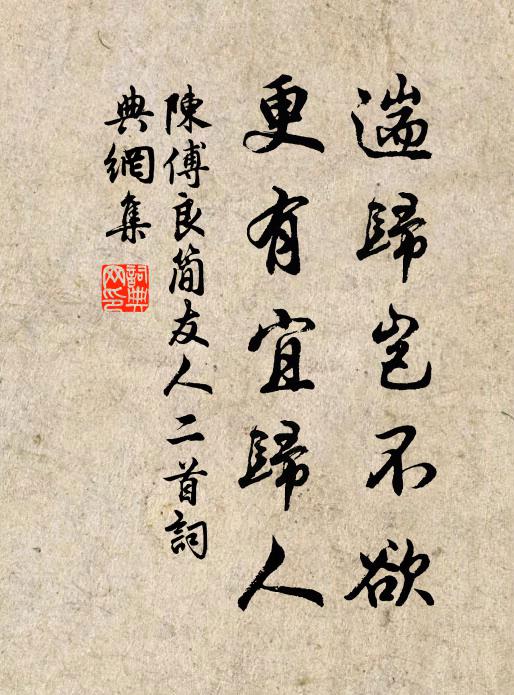 遄歸豈不欲
更有宜歸人
陳傅良簡友人二首詞
典網集
詞典網印